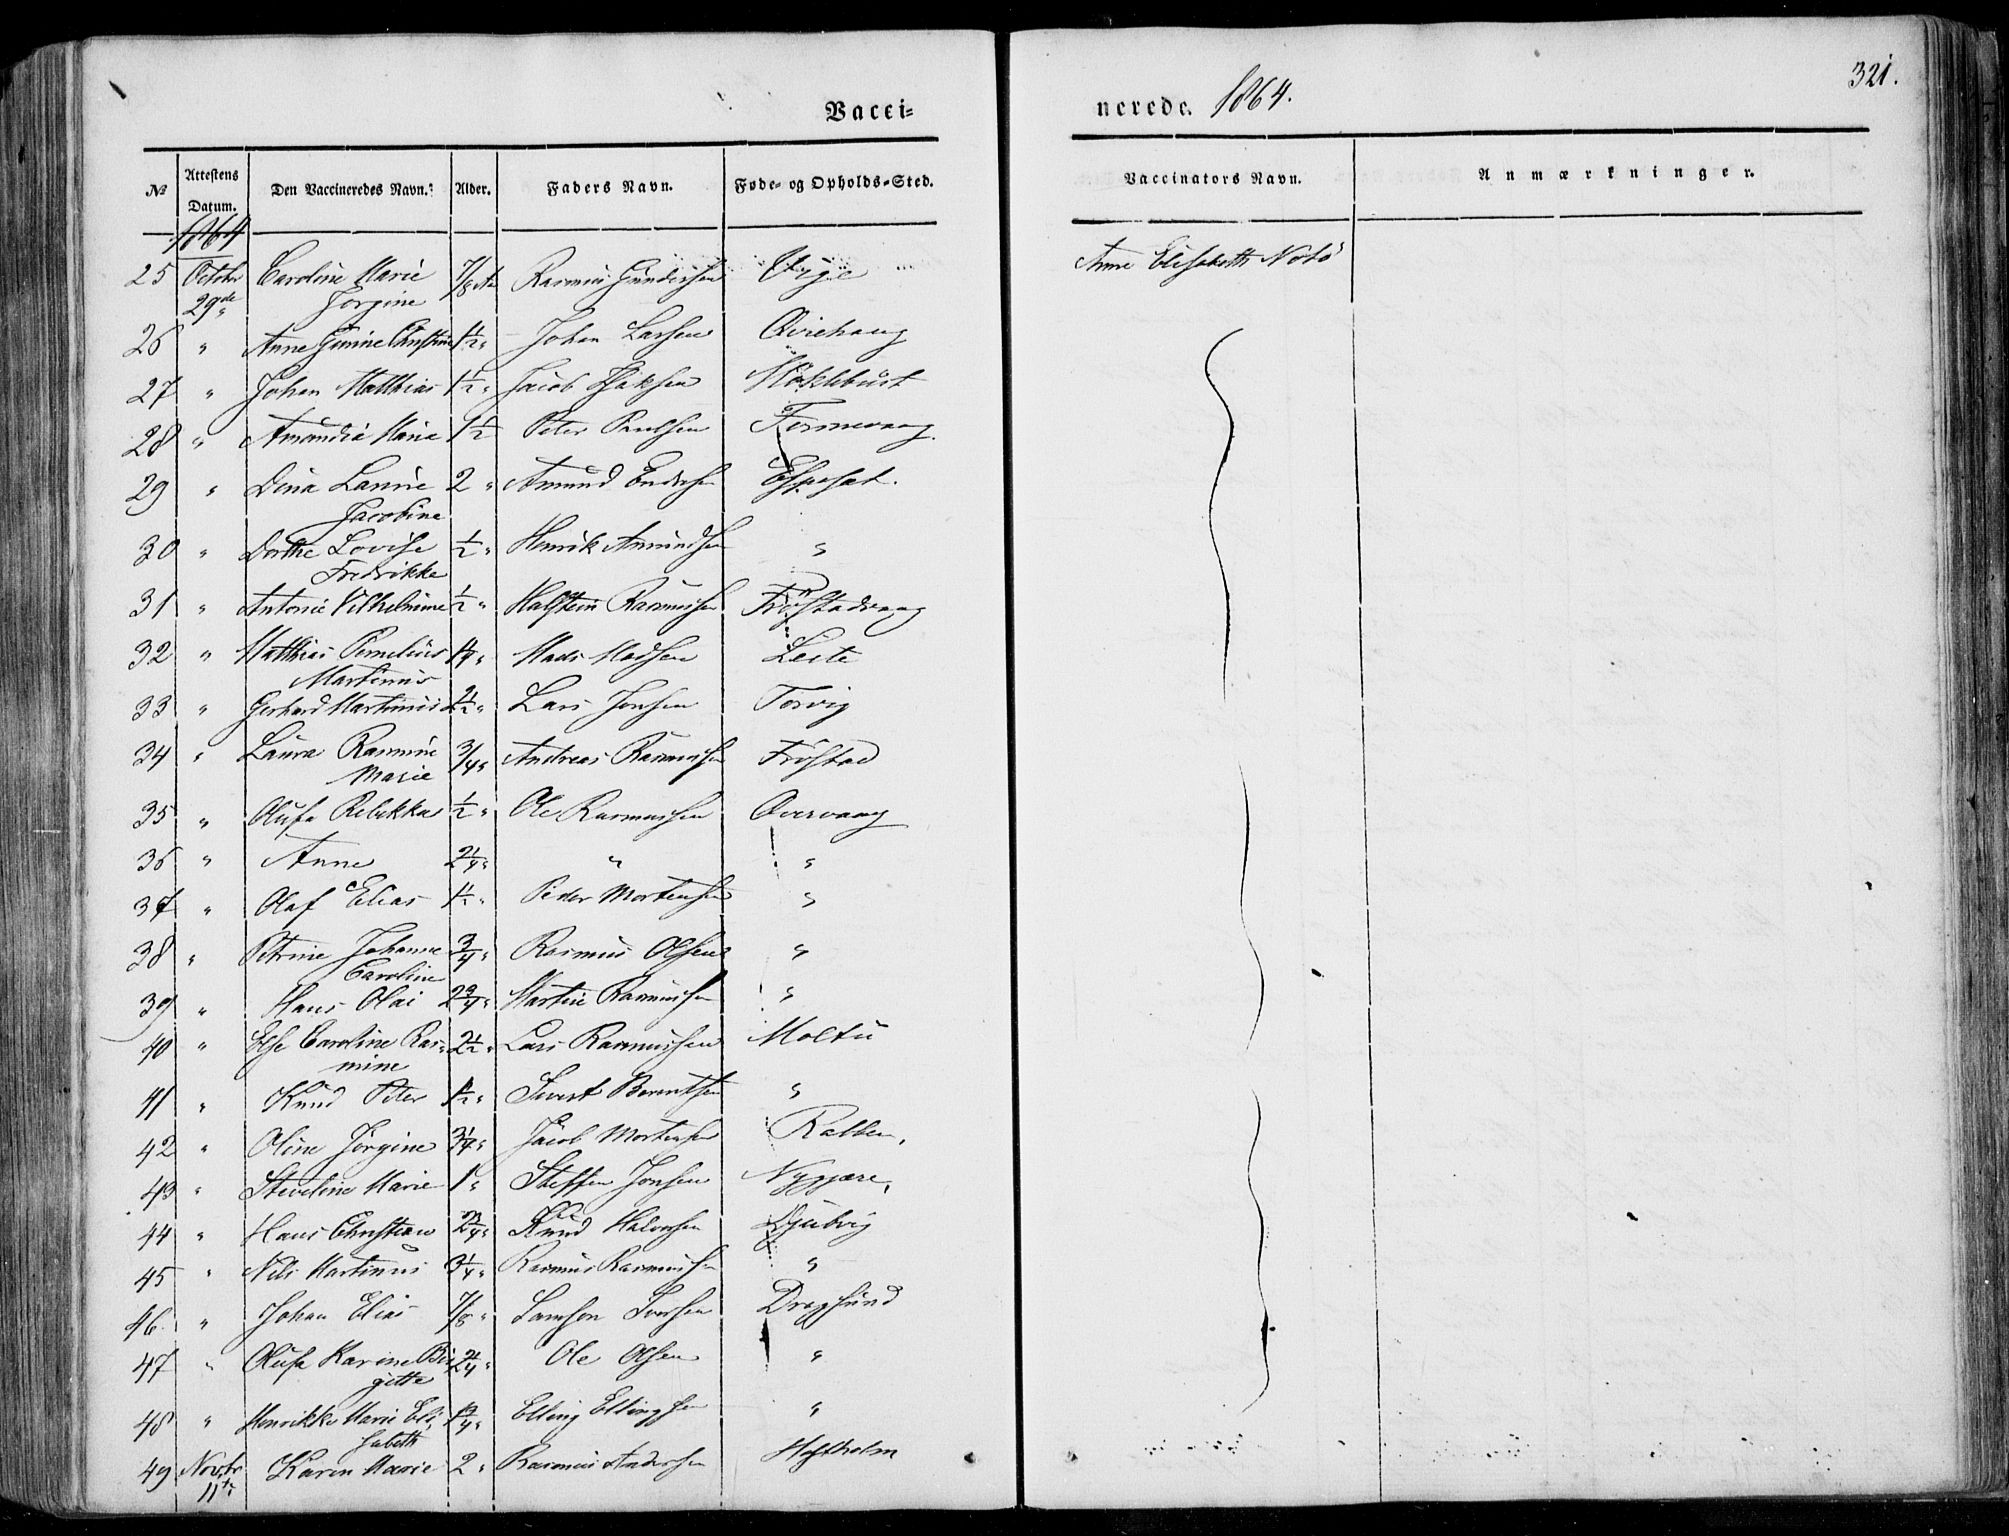 Vacci=
nerede. 1864.
321.
No Attestens Datum. Den Vaccineredes Navn. Alder. Faders Navn. Føde- og Opholds-Sted. Vaccinators Navn. Anmærkninger.
1864
25 Octobr 29de Caroline Marie Jørgine 7/8 Rasmus Gundersen Anne Elisabeth Notø
26 " Anne Gurine Christine 1 1/2 " Johan Larsen Qviehaug
27 " Johan Matthias 1 1/2 " Jacob
28 " Amandia Marie 1 1/2 Peter Paulsen
29 " Dina Laurine Jacobine 2 " Amund Endresen Espeset.
30 " Dorthe Lovise Fredrikke 1/2 " Henrik Amundsen "
31 " Antonie Vilhelmine 1/2 " Halstein Rasmussen Frøstadvaag
32 " Matthias Martinus Mads Madsen Leite
33 " Gerhard Martinus 2 1/2 " Lars Jonsen Torvig
34 " Laura Rasmine Marie 3/4 " Andreas Rasmussen Frøstad
35 " Olufa Rebekka 1/2 " Ole Rasmussen Overvaag
36 " Anne 2 1/4 " " "
37 " Olaf Elias 1 1/2 " Peder Mortensen "
38 " Petrine Johanne Caroline 3/4 " Rasmus Olsen "
39 " Hans Olai 2 3/4 " Martin Rasmussen "
40 " Else Caroline Rasmine 2 1/2 " Lars Rasmussen Moltu
41 " Knud Peter 1 1/2 " Sivert Berentsen "
42 " Oline Jørgine 3 1/4 " Jacob Mortensen
43 " Steveline Marie 1 " Steffen Jonsen Nygjære,
44 " Hans Christian 2 3/4 " Knud Halvorsen Djubvig
45 " Nils Martinus 3 1/4 " Rasmus Rasmussen "
46. " Johan Elias 7/8 " Samson Iversen Dragsund
47 " Olufa Karine Birgitte Ole Olsen "
48 " Henrikke Marie Elisabeth Elling Ellingsen "
49 Novbr 11te Karen Marie 2 " Rasmus Andersen